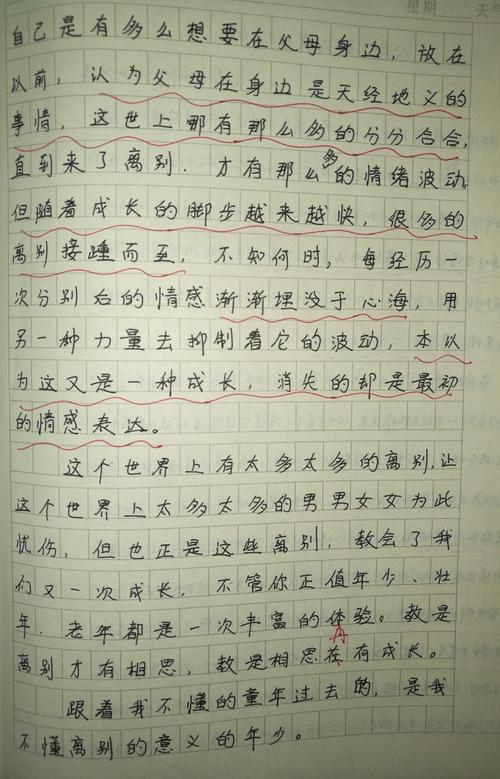 星期 天气
自己是有多么想要在父母身边，放在
以前，认为父母在身边是天经地义的
事情，这世上哪有那么多的分分合合，
直到来了离别．才有那么多的情绪波动，
但随着成长的脚步越来越快，很多的
离别接踵而至，不知何时，每经历一
次分别后的情感渐渐埋没于心海，用
另一种力量去抑制着它的波动，本以
为这又是一种成长，消失的却是最初
的情感表达。
这个世界上有太多太多的离别，让
这个世界上太多太多的男男女女为此
忧伤，但也正是这些离别，教会了我
们又一次成长，不管你正值年少、壮
年．老年都是一次丰富的体验。教是
离别才有相思，教是相思在再有成长。
跟着我不懂的童年过去的，是我
不懂离别的意义的年少。